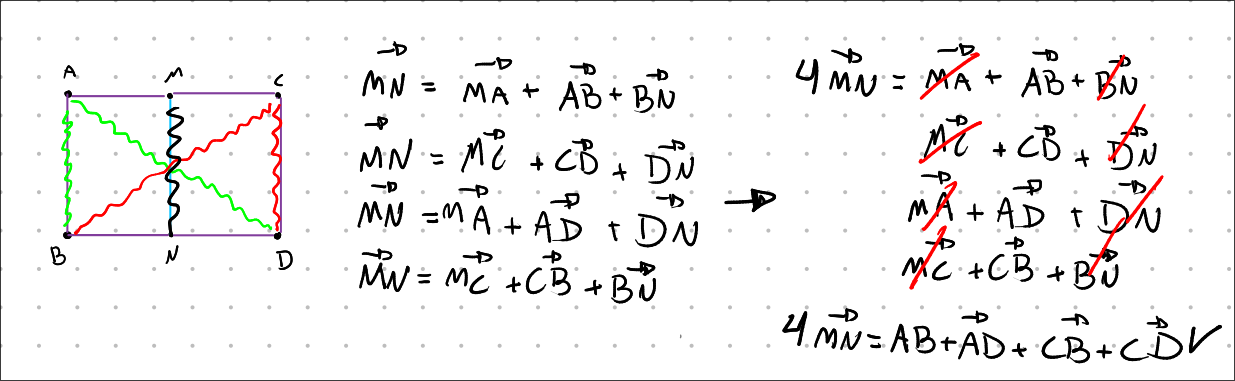 A M C
B N D
MN = MA + AB + BN
MN = MC + CD + DN
MN = MA + AD + DN
MN = MC + CB + BN
4MN = MA + AB + BN
MC + CD + DN
MA + AD + DN
MC + CB + BN
4MN = AB + AD + CB + CD ✓